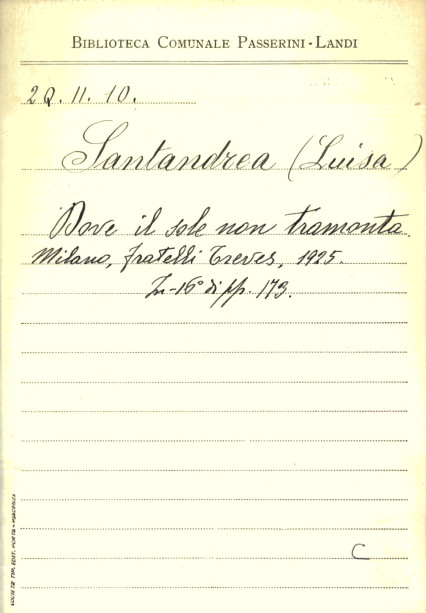 BIBLIOTECA COMUNALE PASSERINI-LANDI
2Q. 11. 10.
Santandrea (Luisa)
Dove il sole non tramonta.
Milano, fratelli Treves, 1925.
In-16° di pp. 173.
C